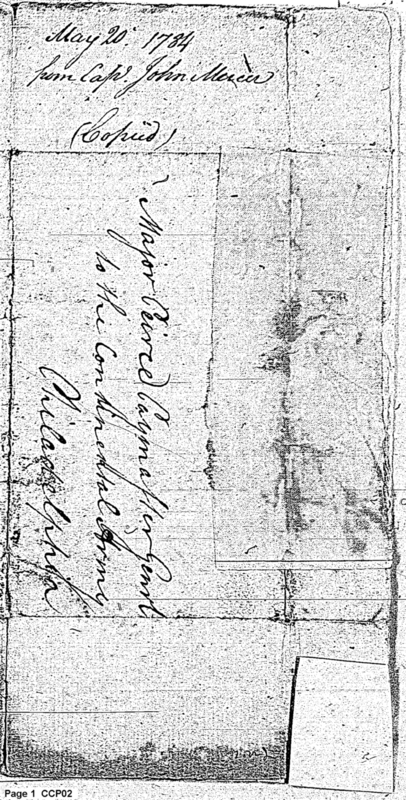 May 20th 1784
from Capt. John Mercer
(Copied)
Major Peirce Paymaster Genrl
to the Continental Army
Philadelphia
Page 1 CCP02